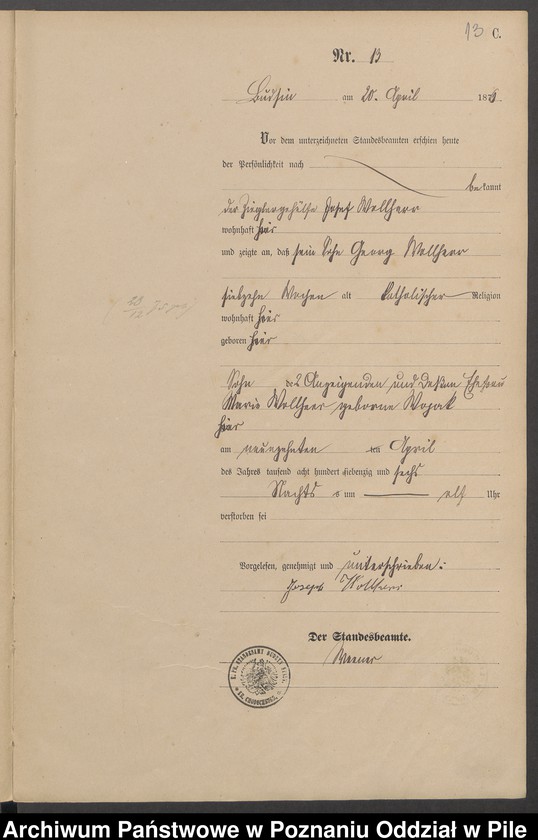 13 C.
Nr. 13
Budsin am 20. April 1876
Vor dem unterzeichneten Standesbeamten erschien heute
der Persönlichkeit nach
bekannt
der Ziegler gehülfe Josef Wollherr
wohnhaft hier
und zeigte an, daß sein Sohn Georg Wollherr
siebzehn Wochen alt Katholischer Religion
wohnhaft hier
geboren hier
Sohn des Anzeigenden und dessen Ehefrau
Marie Wollherr geborne Wozak
hier
am neunzehnten April
des Jahres tausend acht hundert siebenzig und sechs
Nachts um elf Uhr
verstorben sei
Vorgelesen, genehmigt und unterschrieben:
Joseph Wollherr
Der Standesbeamte.
Archiwum Państwowe w Poznaniu Oddział w Pile